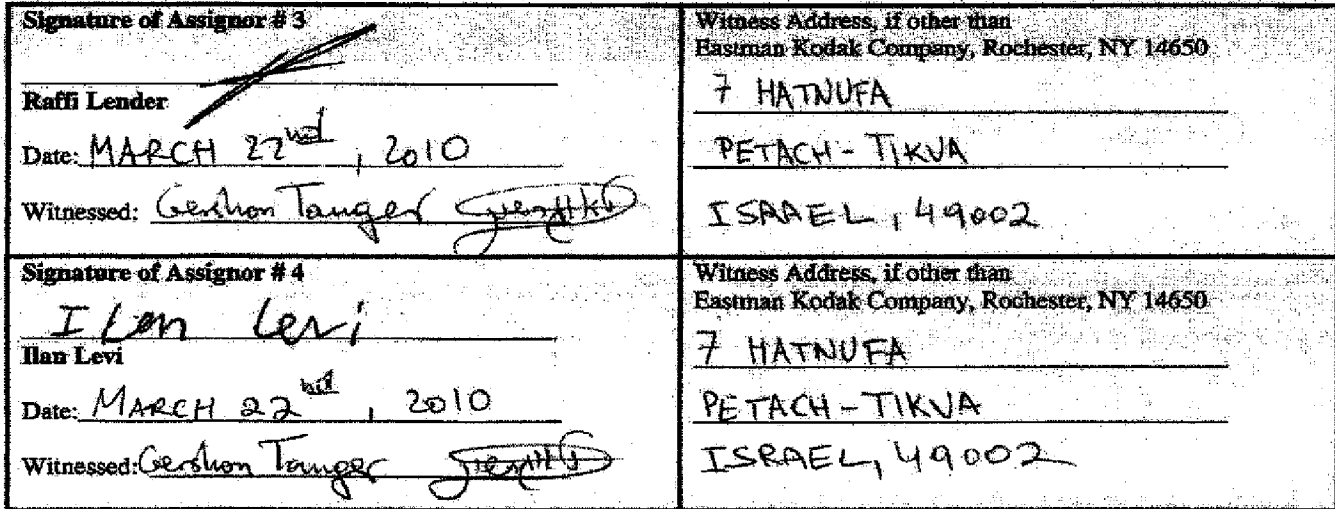 Signature of Assignor # 3
Raffi Lender
Date: MARCH 22nd, 2010
Witnessed: Gershon Tanger
Witness Address, if other than
Eastman Kodak Company, Rochester, NY 14650
7 HATNUFA
PETACH - TIKVA
ISRAEL, 49002
Signature of Assignor # 4
Ilan Levi
Ilan Levi
Date: MARCH 22nd, 2010
Witnessed: Gershon Tanger
Witness Address, if other than
Eastman Kodak Company, Rochester, NY 14650
7 HATNUFA
PETACH - TIKVA
ISRAEL, 49002